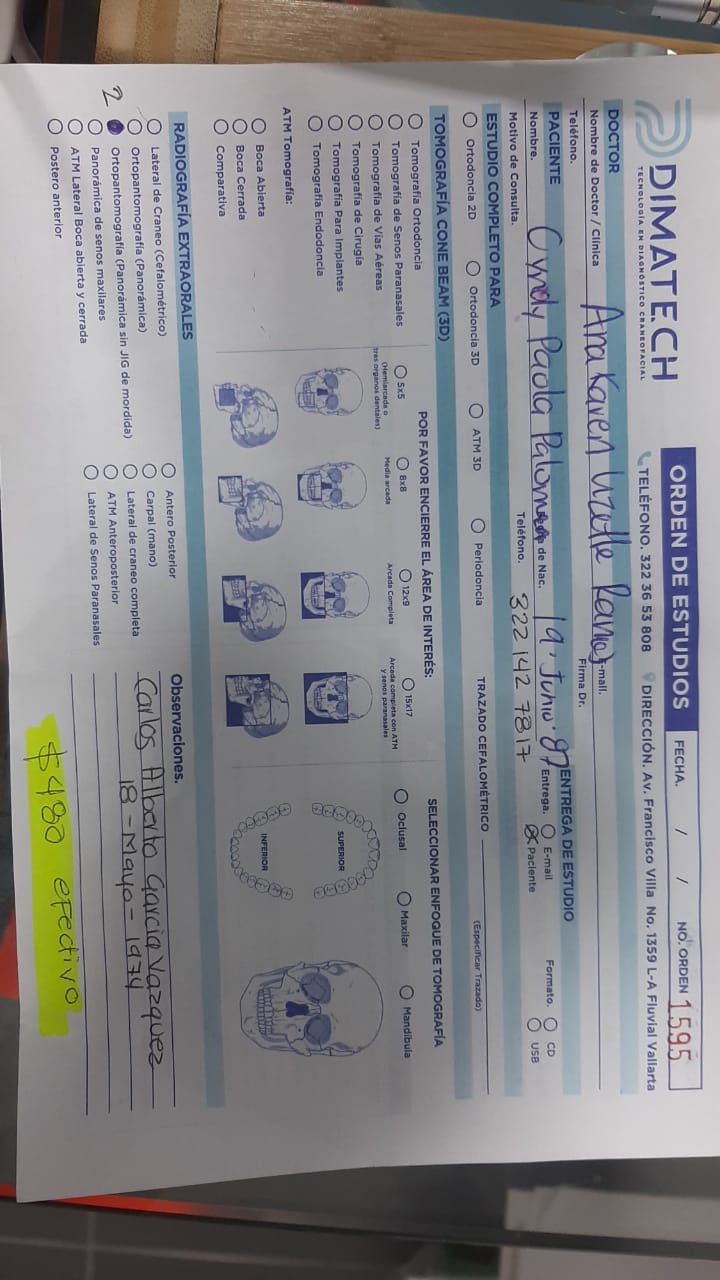 DIMATECH
TECNOLOGÍA EN DIAGNÓSTICO CRANEOFACIAL
ORDEN DE ESTUDIOS FECHA. / / NO. ORDEN 1595
TELÉFONO. 322 36 53 808 DIRECCIÓN. Av. Francisco Villa No. 1359 L-A Fluvial Vallarta
DOCTOR
Nombre de Doctor / Clínica Ana Karen Lizette Ramos E-mail.
Teléfono. Firma Dr.
PACIENTE
Nombre. Cyndy Paola de Nac. 19. Junio. 87
Motivo de Consulta. Teléfono. 322 142 7817
ENTREGA DE ESTUDIO
Entrega. E-mail
Paciente
Formato. CD
USB
ESTUDIO COMPLETO PARA
Ortodoncia 2D Ortodoncia 3D ATM 3D Periodoncia
TRAZADO CEFALOMÉTRICO
(Especificar Trazado)
TOMOGRAFÍA CONE BEAM (3D)
Tomografía Ortodoncia
Tomografía de Senos Paranasales
Tomografía de Vías Aéreas
Tomografía de Cirugía
Tomografía Para Implantes
Tomografía Endodoncia
ATM Tomografía:
Boca Abierta
Boca Cerrada
Comparativa
POR FAVOR ENCIERRE EL ÁREA DE INTERÉS:
5x5
(Hemiarcada o
tres organos dentales)
8x8
Media arcada
12x9
Arcada Completa
15x17
Arcada completa con ATM
y senos paranasales
SELECCIONAR ENFOQUE DE TOMOGRAFÍA
Oclusal Maxilar Mandíbula
SUPERIOR
INFERIOR
RADIOGRAFÍA EXTRAORALES
Lateral de Craneo (Cefalométrico)
Ortopantomografía (Panorámica)
2 Ortopantomografía (Panorámica sin JIG de mordida)
Panorámica de senos maxilares
ATM Lateral Boca abierta y cerrada
Postero anterior
Antero Posterior
Carpal (mano)
Lateral de craneo completa
ATM Anteroposterior
Lateral de Senos Paranasales
Observaciones.
Carlos Alberto Garcia Vazquez
18 - Mayo - 1974
$480 efectivo